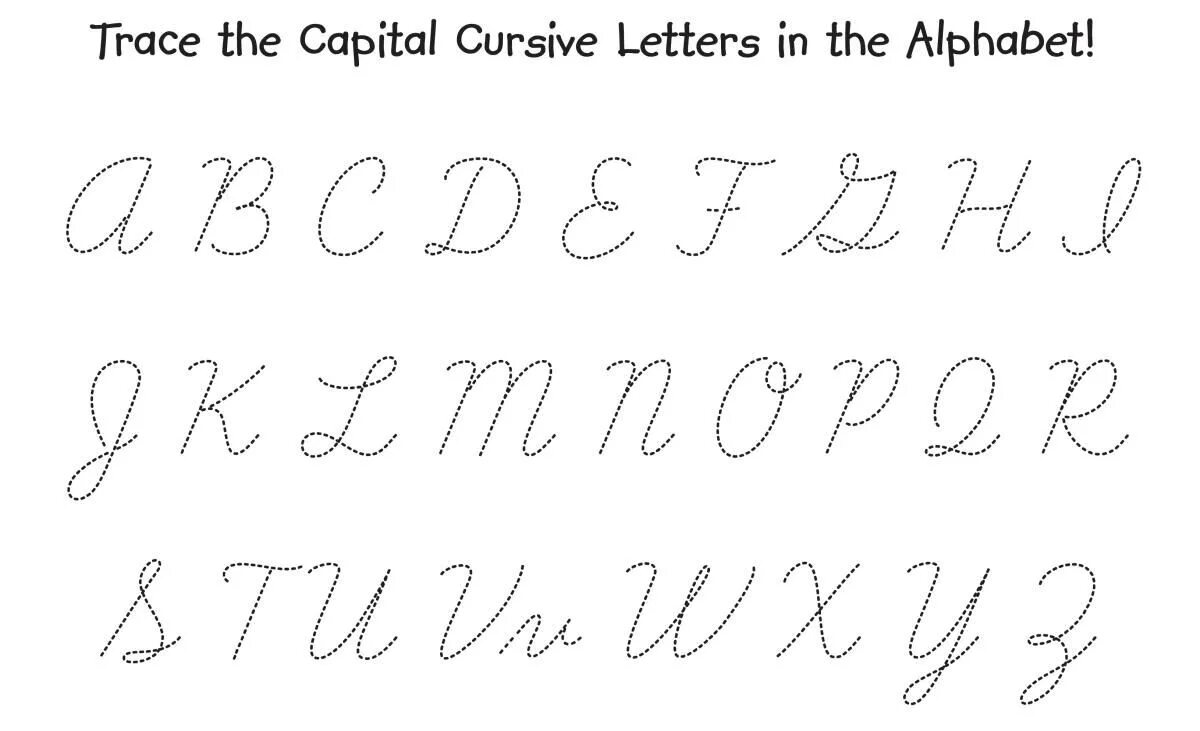 Trace the Capital Cursive Letters in the Alphabet!
A B C D E F G H I
J K L M N O P Q R
S T U V v W X Y Z